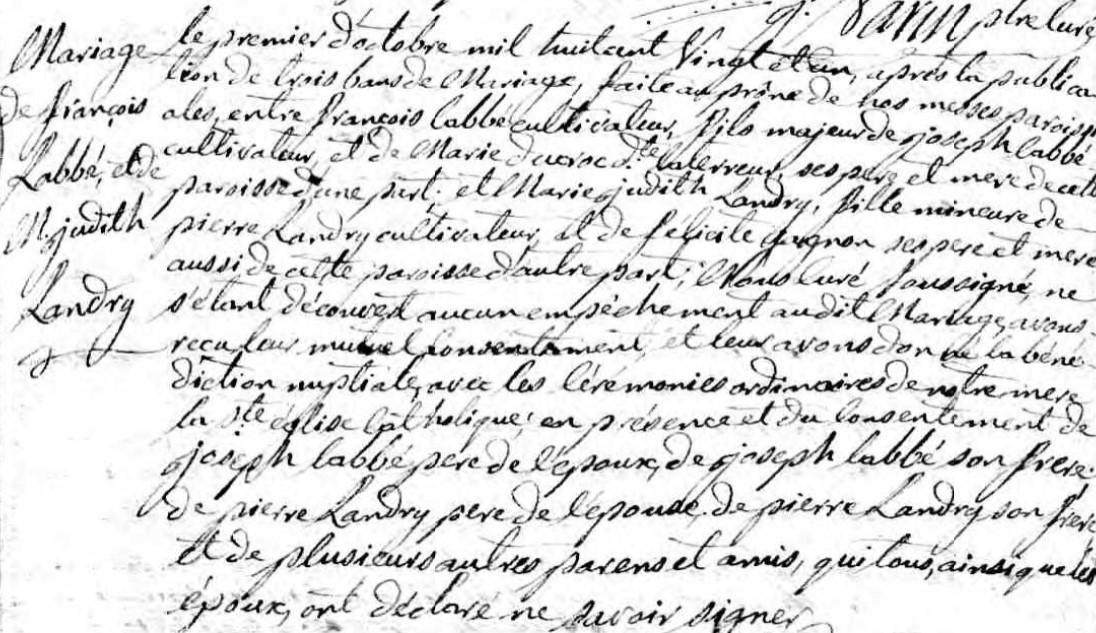 Varin ptre curé
Mariage
de françois
Labbé, et de
M. judith
Landry
le premier d'octobre mil huit cent Vingt et un, après la publica
tion de trois bans de Mariage, faite au prône de nos messes paroissi
ales, entre françois labbé cultivateur, fils majeur de joseph labbé
cultivateur, et de Marie ducroc dte laterreur, ses pere et mere de cette
paroisse d'une part; et Marie judith Landry, fille mineure de
pierre Landry cultivateur, et de félicité gagnon ses pere et mere
aussi de cette paroisse d'autre part; Nous curé soussigné, ne
s'étant découvert aucun empêchement audit Mariage, avons
reçu leur mutuel consentement, et leur avons donné la béné
diction nuptiale, avec les cérémonies ordinaires de notre mere
la ste église catholique; en présence et du consentement de
joseph labbé pere de l'époux, de joseph labbé son frere,
de pierre Landry pere de l'épouse, de pierre Landry son frere,
et de plusieurs autres parens et amis, qui tous, ainsi que les
époux, ont déclaré ne savoir signer